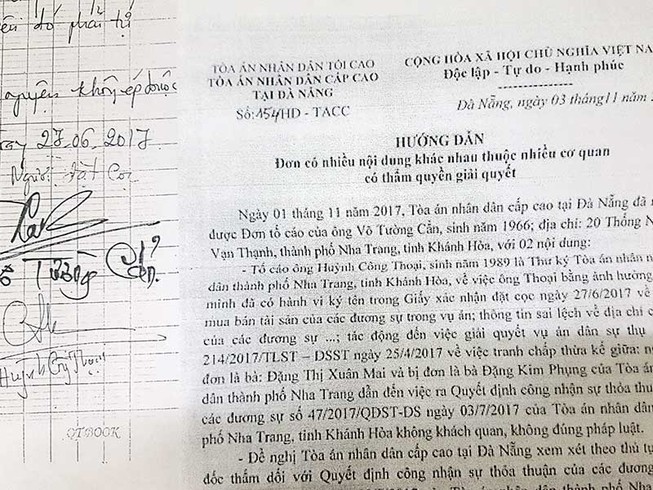 đó phải tự
nguyện không ép buộc
27.06.2017
Người đặt cọc
Tường Cẩn.
Huỳnh Công Thoại
QTBOOK
TÒA ÁN NHÂN DÂN TỐI CAO
TÒA ÁN NHÂN DÂN CẤP CAO
TẠI ĐÀ NẴNG
Số: 154/HD - TACC
CỘNG HÒA XÃ HỘI CHỦ NGHĨA VIỆT NA
Độc lập - Tự do - Hạnh phúc
Đà Nẵng, ngày 03 tháng 11 năm 2
HƯỚNG DẪN
Đơn có nhiều nội dung khác nhau thuộc nhiều cơ quan
có thẩm quyền giải quyết
Ngày 01 tháng 11 năm 2017, Tòa án nhân dân cấp cao tại Đà Nẵng đã n
được Đơn tố cáo của ông Võ Tường Cẩn, sinh năm 1966; địa chỉ: 20 Thống N
Vạn Thạnh, thành phố Nha Trang, tỉnh Khánh Hòa, với 02 nội dung:
- Tố cáo ông Huỳnh Công Thoại, sinh năm 1989 là Thư ký Tòa án nhân n
dân thành phố Nha Trang, tỉnh Khánh Hòa, về việc ông Thoại bằng ảnh hưởng
mình đã có hành vi ký tên trong Giấy xác nhận đặt cọc ngày 27/6/2017 về
mua bán tài sản của các đương sự trong vụ án; thông tin sai lệch về địa chỉ c
của các đương sự ...; tác động đến việc giải quyết vụ án dân sự thụ
214/2017/TLST – DSST ngày 25/4/2017 về việc tranh chấp thừa kế giữa: ng
đơn là bà: Đặng Thị Xuân Mai và bị đơn là bà Đặng Kim Phụng của Tòa án
dân thành phố Nha Trang dẫn đến việc ra Quyết định công nhận sự thỏa thu
các đương sự số 47/2017/QĐST-DS ngày 03/7/2017 của Tòa án nhân dân
phố Nha Trang, tỉnh Khánh Hòa không khách quan, không đúng pháp luật.
- Đề nghị Tòa án nhân dân cấp cao tại Đà Nẵng xem xét theo thủ tụ
đốc thẩm đối với Quyết định công nhận sự thỏa thuận của các đương